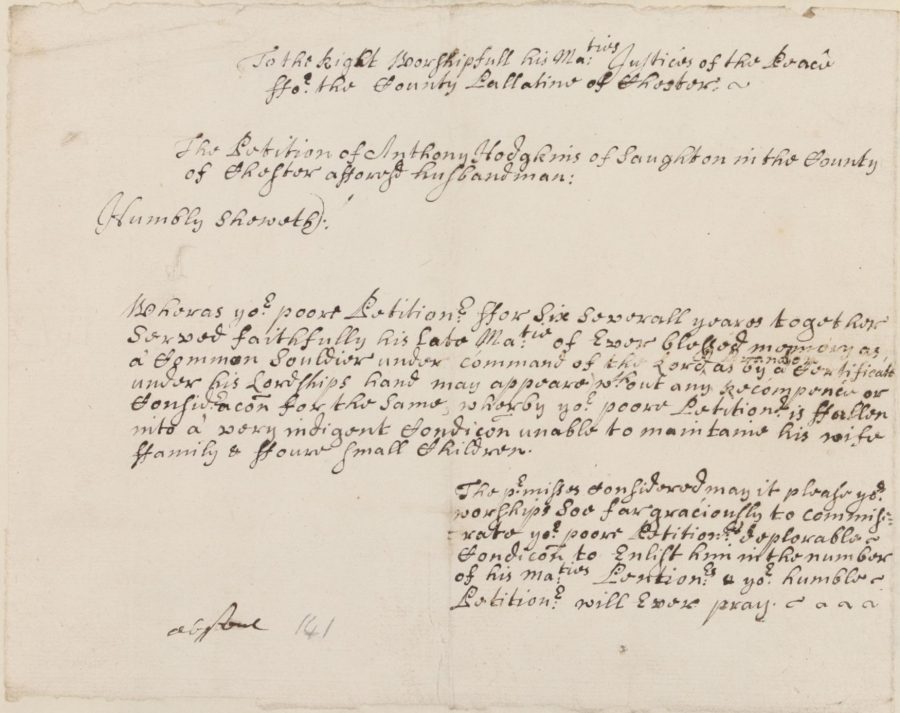 To the Right Worshipfull his Ma:ties Justices of the Peace
ffor. the County Pallatine of Chester: ~
The Petition of Anthony Hodgkins of Saughton in the County
of Chester aforesd husbandman:
(Humbly Sheweth):
Wheras yor. poore Petitionr. ffor Six Severall yeares together
Served faithfully his late Ma:tie of Ever blessed memory as
a Common Souldier under command of the Lord Brandon
as by a Certificate
under his Lordships hand may appeare wthout any Recompence or
Considracon for the Same, wherby yor. poore Petitionr. is ffallen
into a very indigent Condicon unable to maintaine his wife
ffamily & ffoure small Children.
The prmisses Considered may it please yor.
worships Soe far graciously to commise:
-rate yor. poore Petitionrs. deplorable ~
Condicon to Enlist him in the number
of his Ma:ties Pentionrs. & yor. humble ~
Petitionr. will Ever pray. ~ ~ ~ ~
141